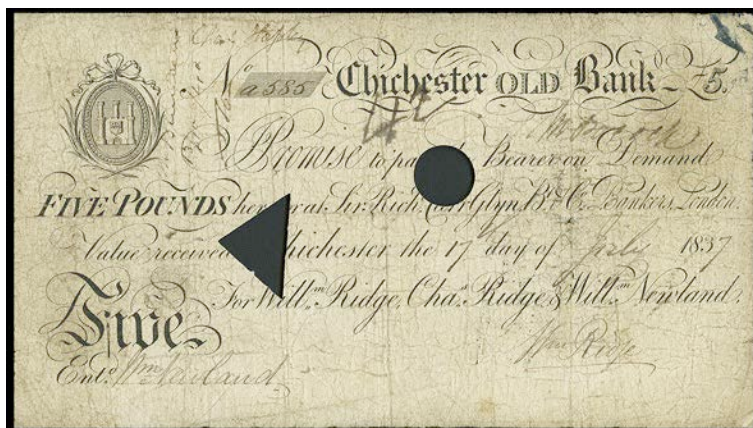 No a 585 Chichester OLD Bank £5.
42
PROMISE to pa Bearer on Demand
FIVE POUNDS here or at Sir Rich Carr Glyn, Bt & Co. Bankers, London.
Value received Chichester the 17 day of July 1837
For Willm Ridge, Chas Ridge & Willm Newland.
Five
Wm Ridge
Entd Wm Newland